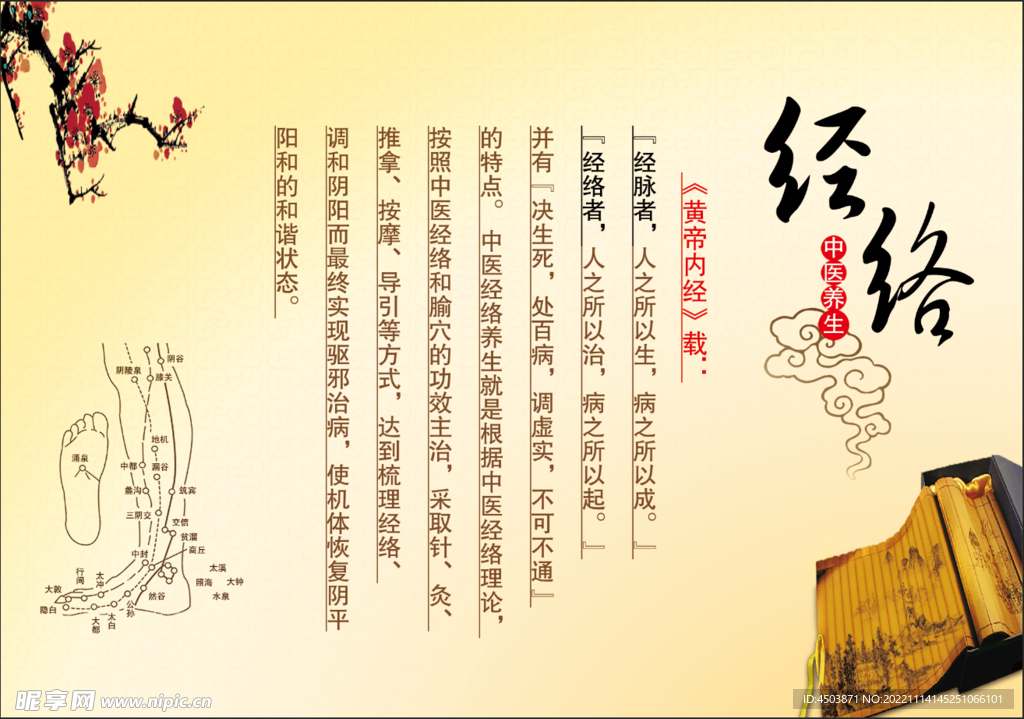 经络
中医养生
《黄帝内经》载：
『经脉者，人之所以生，病之所以成。』
『经络者，人之所以治，病之所以起。』
并有『决生死，处百病，调虚实，不可不通』
的特点。中医经络养生就是根据中医经络理论，
按照中医经络和腧穴的功效主治，采取针、灸、
推拿、按摩、导引等方式，达到梳理经络、
调和阴阳而最终实现驱邪治病，使机体恢复阴平
阳和的和谐状态。
阴谷
阴陵泉
膝关
地机
涌泉
中都
漏谷
蠡沟
筑宾
三阴交
交信
贫溜
中封
商丘
行间
太冲
太溪
照海
大钟
水泉
大敦
然谷
隐白
公孙
太白
大都
昵享网 www.nipic.cn
ID:4503871 NO:20221114145251066101